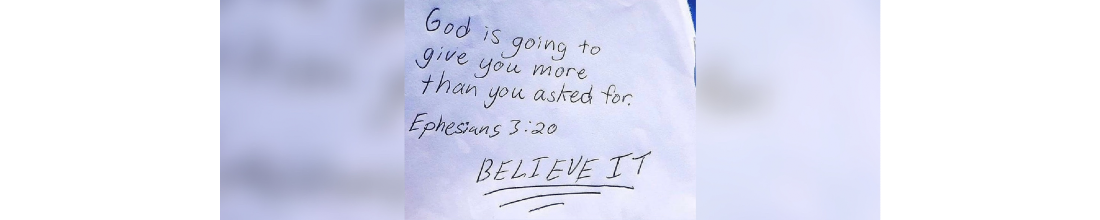 God is going to
give you more
than you asked for.
Ephesians 3:20
BELIEVE IT